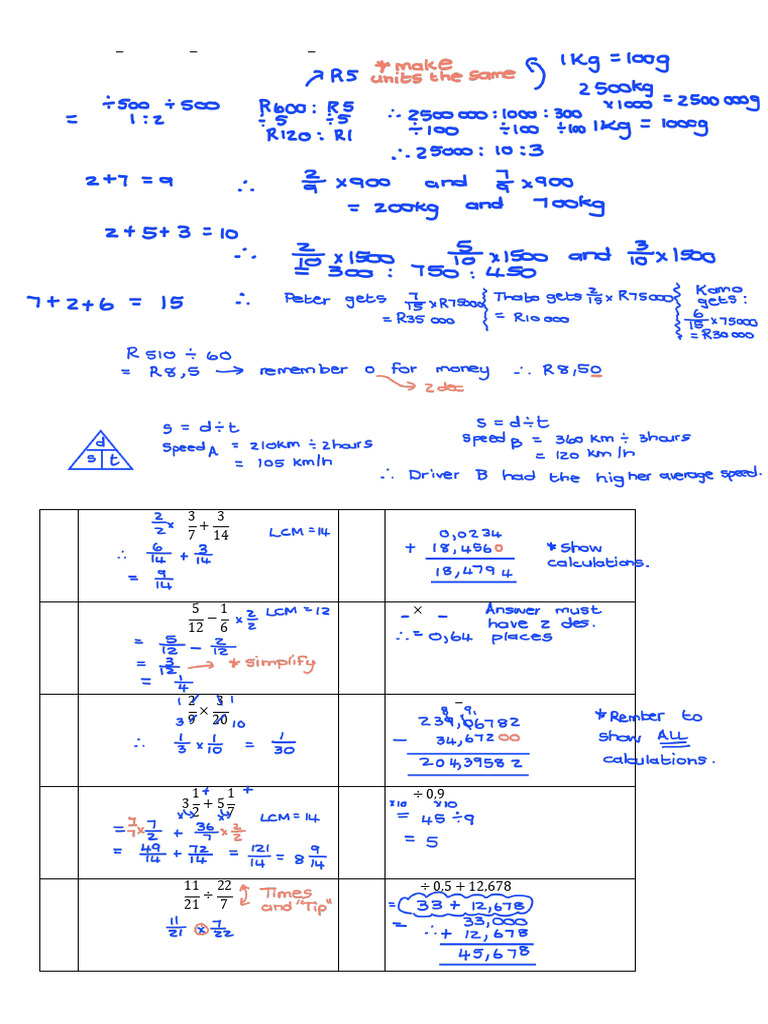 – – –
1Kg = 100g
→ R5 * make units the same
2500kg x1000 = 2500 000g
÷500 ÷500 R600 : R5 ∴ 2500 000 : 1000 : 300
= 1 : 2 ÷5 ÷5 ÷100 ÷100 ÷100 1Kg = 1000g
R120 : R1
∴ 25000 : 10 : 3
2+7 = 9 ∴ 2/9 x900 and 7/9 x900
= 200kg and 700kg
2 + 5 + 3 = 10
∴ 2/10 x1500 5/10 x1500 and 3/10 x1500
= 300 : 750 : 450
7+2+6 = 15 ∴ Peter gets 7/15 x R75000 = R35 000
Thabo gets 2/15 x R75000 = R10 000
Kamo gets: 6/15 x 75000 = R30 000
R 510 ÷ 60
= R8,5 → remember 0 for money ∴ R8,50
→ 2 dec
d s t
s = d÷t
speed A = 210km ÷ 2hours
= 105 km/h
s = d÷t
speed B = 360 km ÷ 3hours
= 120 km/h
∴ Driver B had the higher average speed.
2/2 x 3/7 + 3/14 LCM = 14
∴ 6/14 + 3/14
= 9/14
0,0234
+ 18,4560
18,4794
* Show calculations.
5/12 − 1/6 x 2/2 LCM = 12
= 5/12 − 2/12
= 3/12 → * simplify
= 1/4
– × –
∴ = 0,64
Answer must have 2 des. places
1 2/9 × 3/20 1
3 10
∴ 1/3 x 1/10 = 1/30
–
8 9 1
239,06782
− 34,67200
204,39582
* Rember to show ALL calculations.
3 1/2 + 5 1/7
= 7/7 x 7/2 + 36/7 x 2/2 LCM = 14
= 49/14 + 72/14 = 121/14 = 8 9/14
÷ 0,9
x10 x10
= 45 ÷ 9
= 5
11/21 ÷ 22/7 Times and "Tip"
11/21 x 7/22
÷ 0,5 + 12,678
= 33 + 12,678
= ∴ 33,000
+ 12,678
45,678